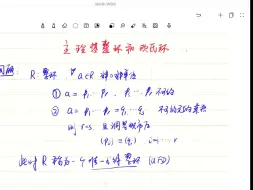 主理想整环和欧氏环
回顾: R: 整环 ∀ a∈R 非0非单位
① a = p₁ ⋯ pᵣ p₁ ⋯ pᵣ 不可约
② a = p₁ ⋯ pᵣ = q₁ ⋯ qₛ 不可约元的乘积
则 r=s, 且调整次序后
(pᵢ) = (qᵢ) i=1, ⋯, r
此时 R 称为一个唯一分解整环 (UFD)